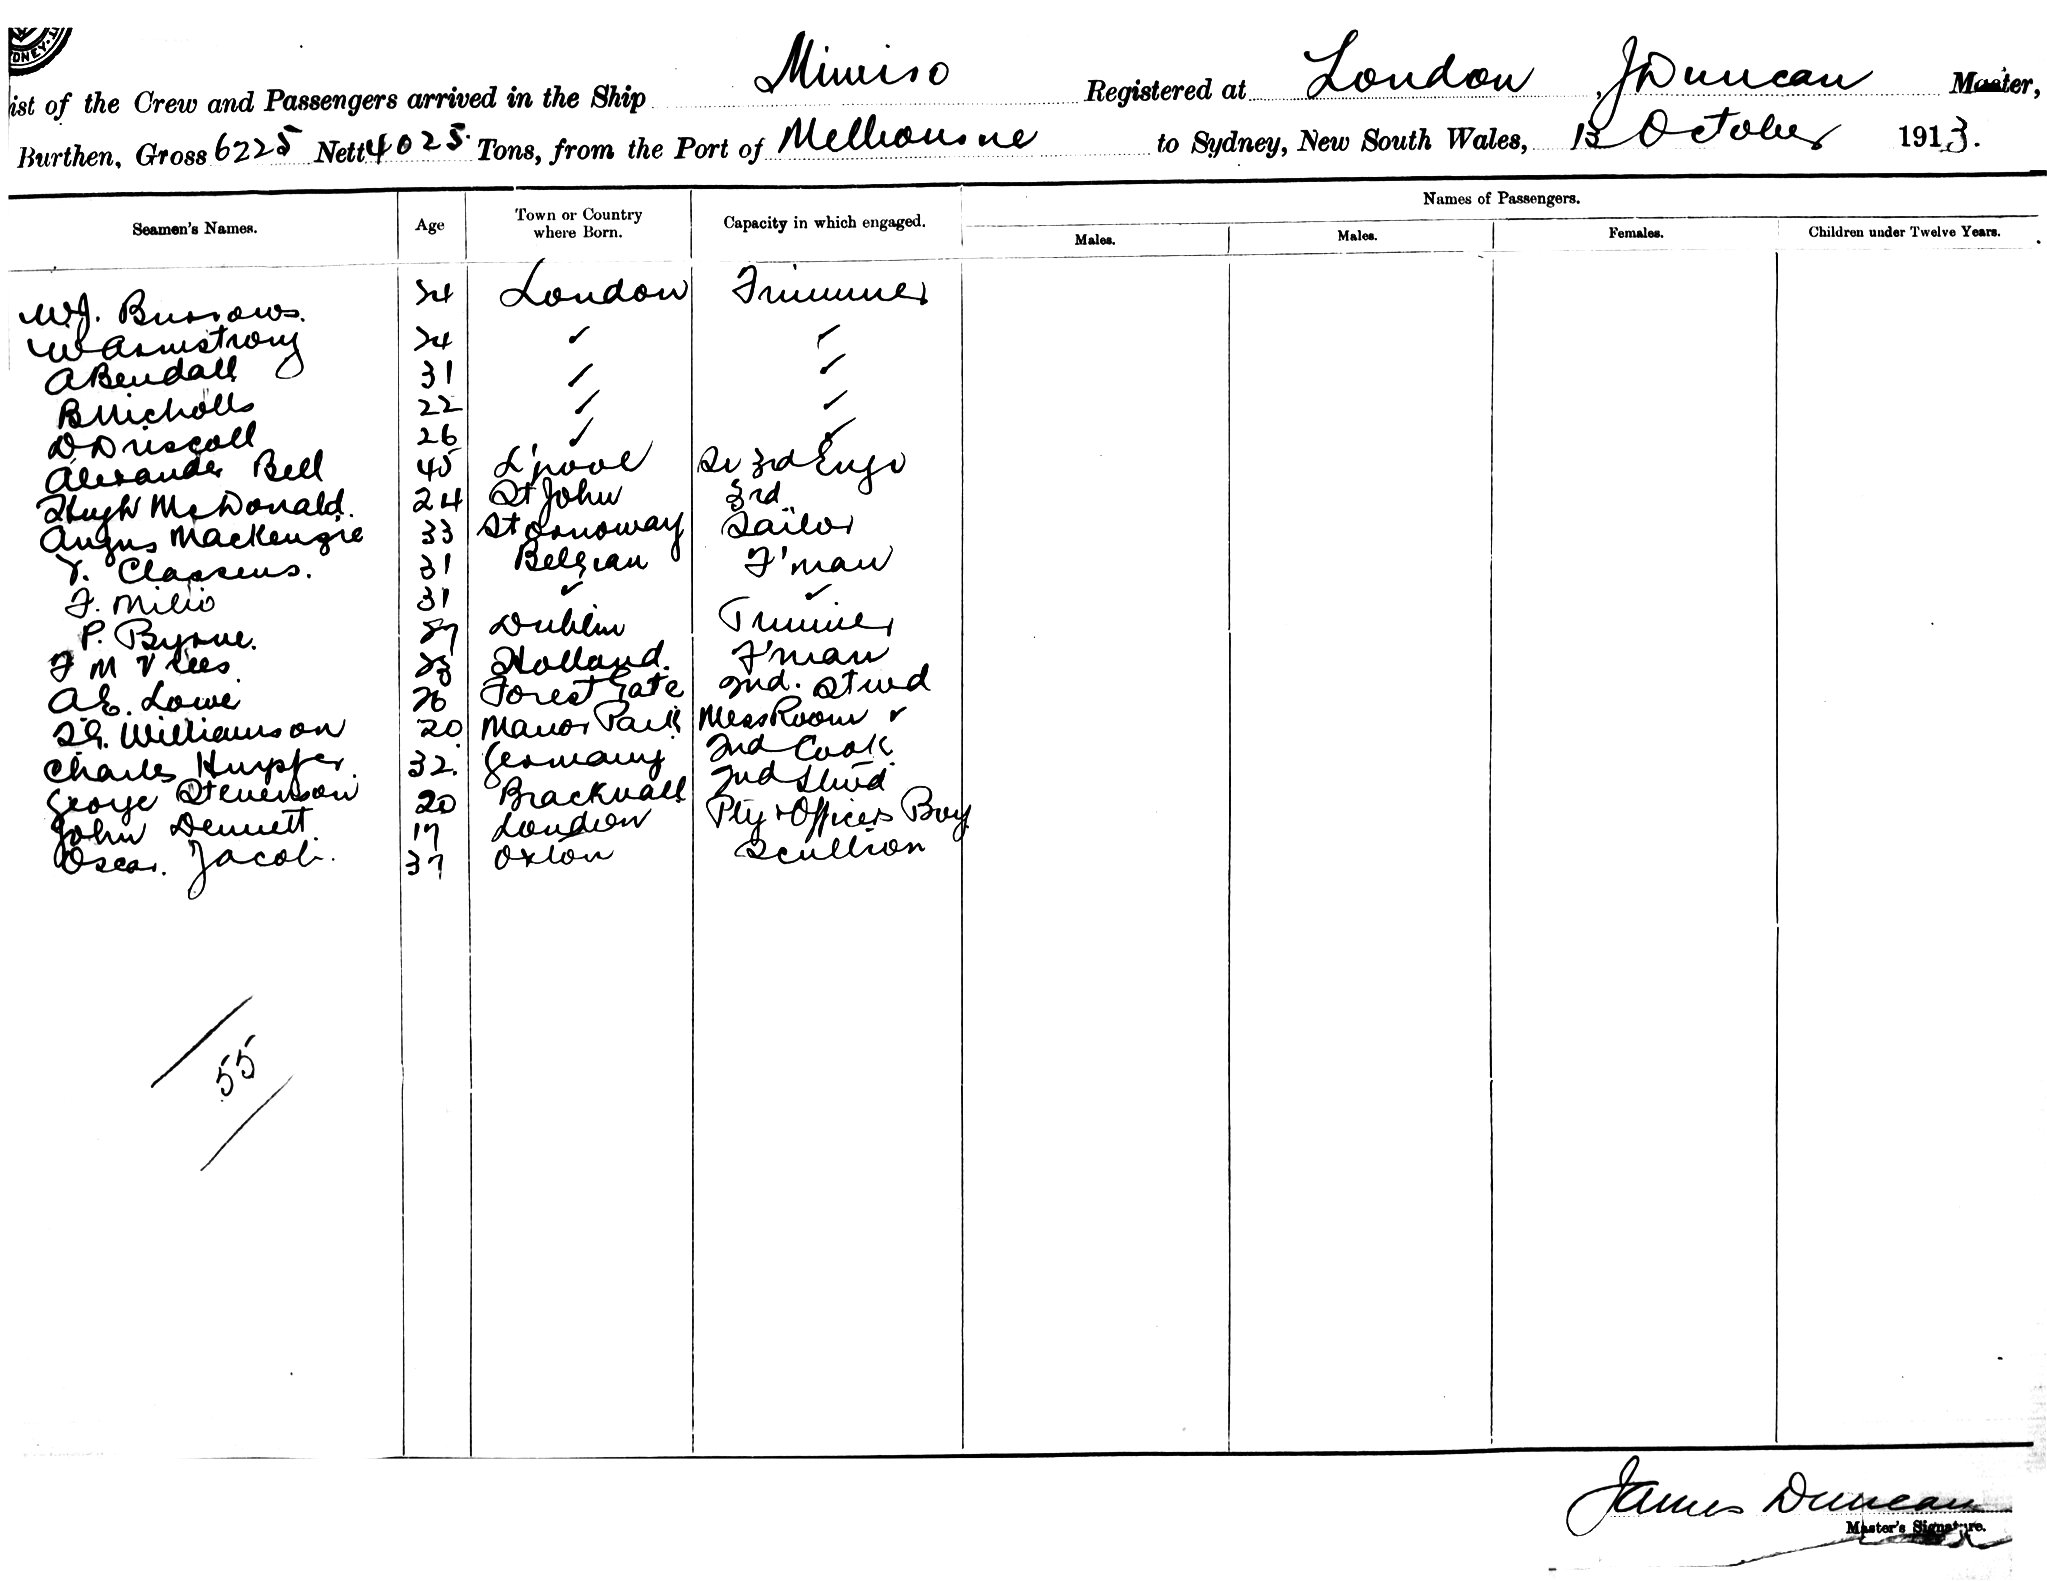 DNEY
Mimiro
ist of the Crew and Passengers arrived in the Ship Registered at London , J Duncan Master,
Burthen, Gross 6225 Nett 4025 Tons, from the Port of Melbourne to Sydney, New South Wales, 13 October 1913.
Names of Passengers.
Seamen's Names. Age Town or Country where Born. Capacity in which engaged. Males. Males. Females. Children under Twelve Years.
W.J. Burrows. 24 London Trimmer
W Armstrong 24 ✓ ✓
A Bendall 31 ✓ ✓
B Nicholls 22 ✓ ✓
D Driscoll 26 ✓ ✓
Alexander Bell 45 L'pool Sr 3rd Engr
Hugh McDonald. 24 St John 3rd
Angus Mackenzie 33 Stornoway Sailor
Classens. 31 Belgian F'man
F. Milio 31 ✓ ✓
P. Byrne. Dublin Trimmer
F M Vlees. Holland. F'man
A.E. Lowe 26 Forest Gate 2nd. Stwd
Williamson 20 Manor Park Mess Room ✓
Charles Hupfer. 32. Germany 2nd Cook
George Stevenson 20 Bracknall 2nd Stwd
John Dennett 17 London Pty & Officers Boy
Oscar. Jacobi. 37 Oxton Scullion
55
James Duncan
Master's Signature.